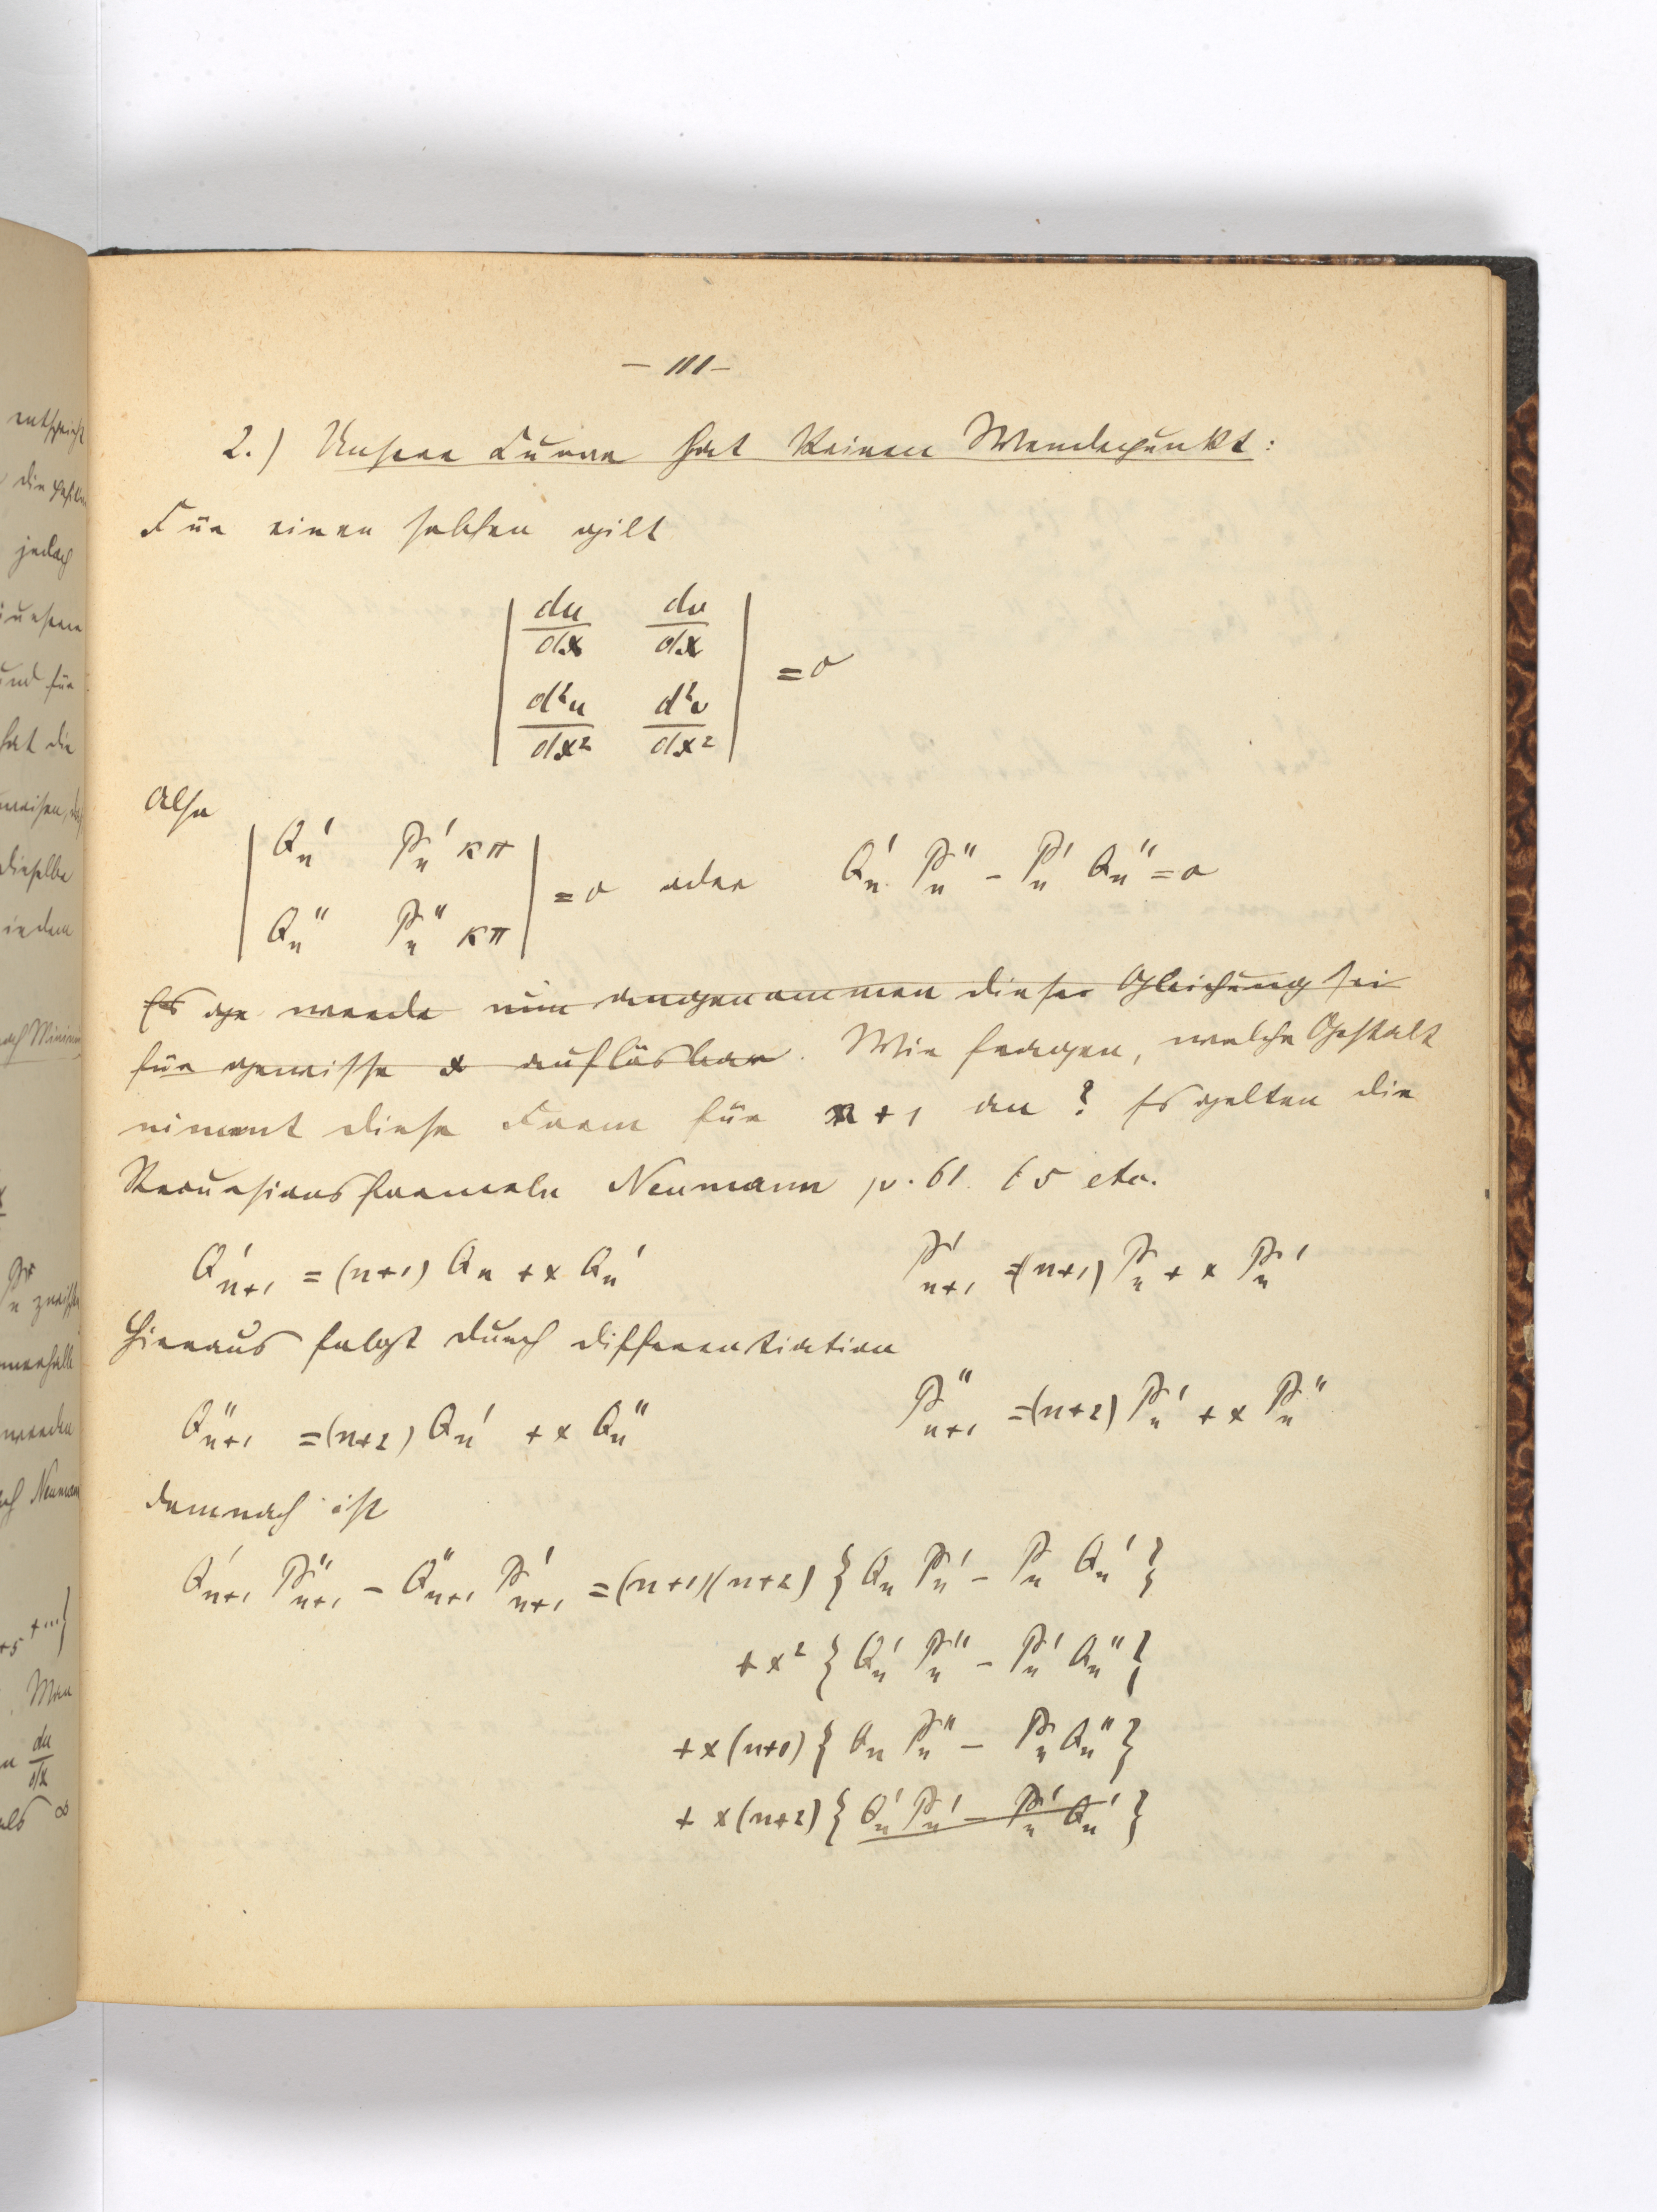 – 111 –
2.) Unsere Curve hat keinen Wendepunkt:
Für einen solchen gilt
| du/dx dv/dx |
| d²u/dx² d²v/dx² | = 0
Also
| Qn′ Pn′ κπ |
| Qn″ Pn″ κπ | = 0 oder Qn′ Pn″ – Pn′ Qn″ = 0
Es ge werde nun angenommen dieser Gleichung sei
für gewisse x auflösbar. Wir fragen, welche Gestalt
nimmt diese Form für n+1 an? Es gelten die
Recursionsformeln Neumann p. 61. 65 etc.
Q′n+1 = (n+1) Qn + x Qn′ P′n+1 = (n+1) Pn + x Pn′
Hieraus folgt durch differentiation
Q″n+1 = (n+2) Qn′ + x Qn″ P″n+1 = (n+2) Pn′ + x Pn″
demnach ist
Q′n+1 P″n+1 – Q″n+1 P′n+1 = (n+1)(n+2) { Qn Pn′ – Pn Qn′ }
+ x² { Qn′ Pn″ – Pn′ Qn″ }
+ x (n+1) { Qn Pn″ – Pn Qn″ }
+ x (n+2) { Qn′ Pn′ – Pn′ Qn′ }
entspricht
jedoch
unsere
und für
hat die
dieselbe
indem
nach Minimum
Pn
werden
nach Neumann
+ ...}
Man
du/dx
als ∞